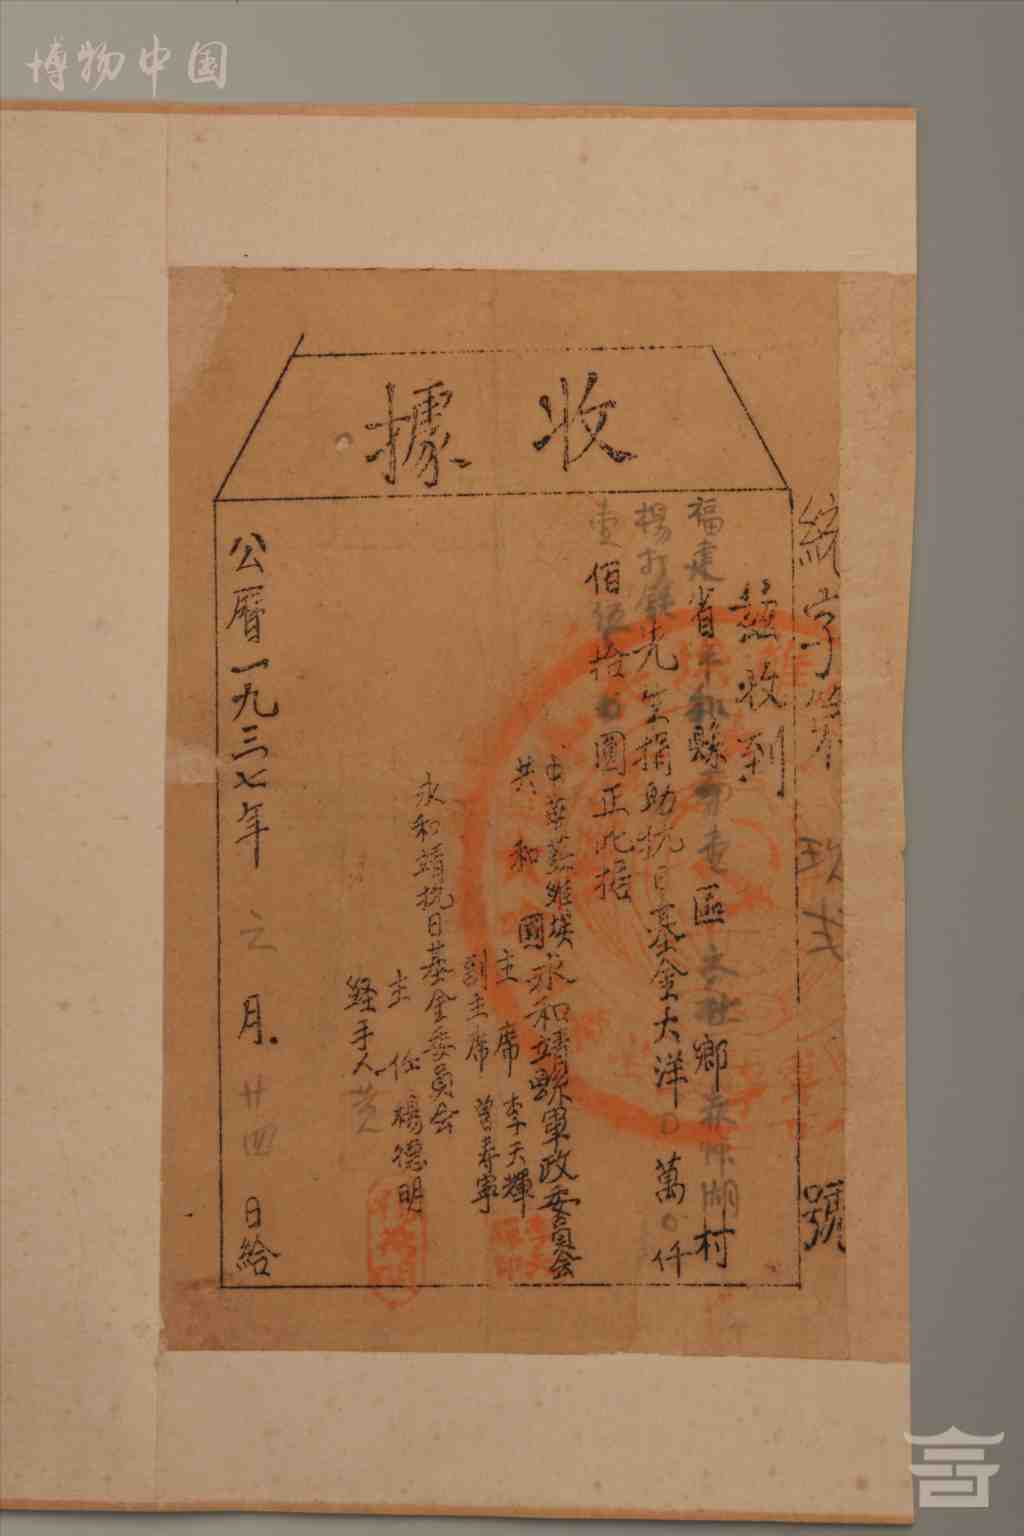 博物中国
收據
統字第玖弍號
茲收到
福建省平和縣第壹區 鄉 湖村
楊打 先生捐助抗日基金大洋0萬0仟
壹佰伍拾0圓正此據
中華蘇維埃
共和國
永和靖縣軍政委員会
主席 李天輝
副主席 曾寿寧
永和靖抗日基金委員会
主任 楊德明
経手人
公曆一九三七年 月廿四日給